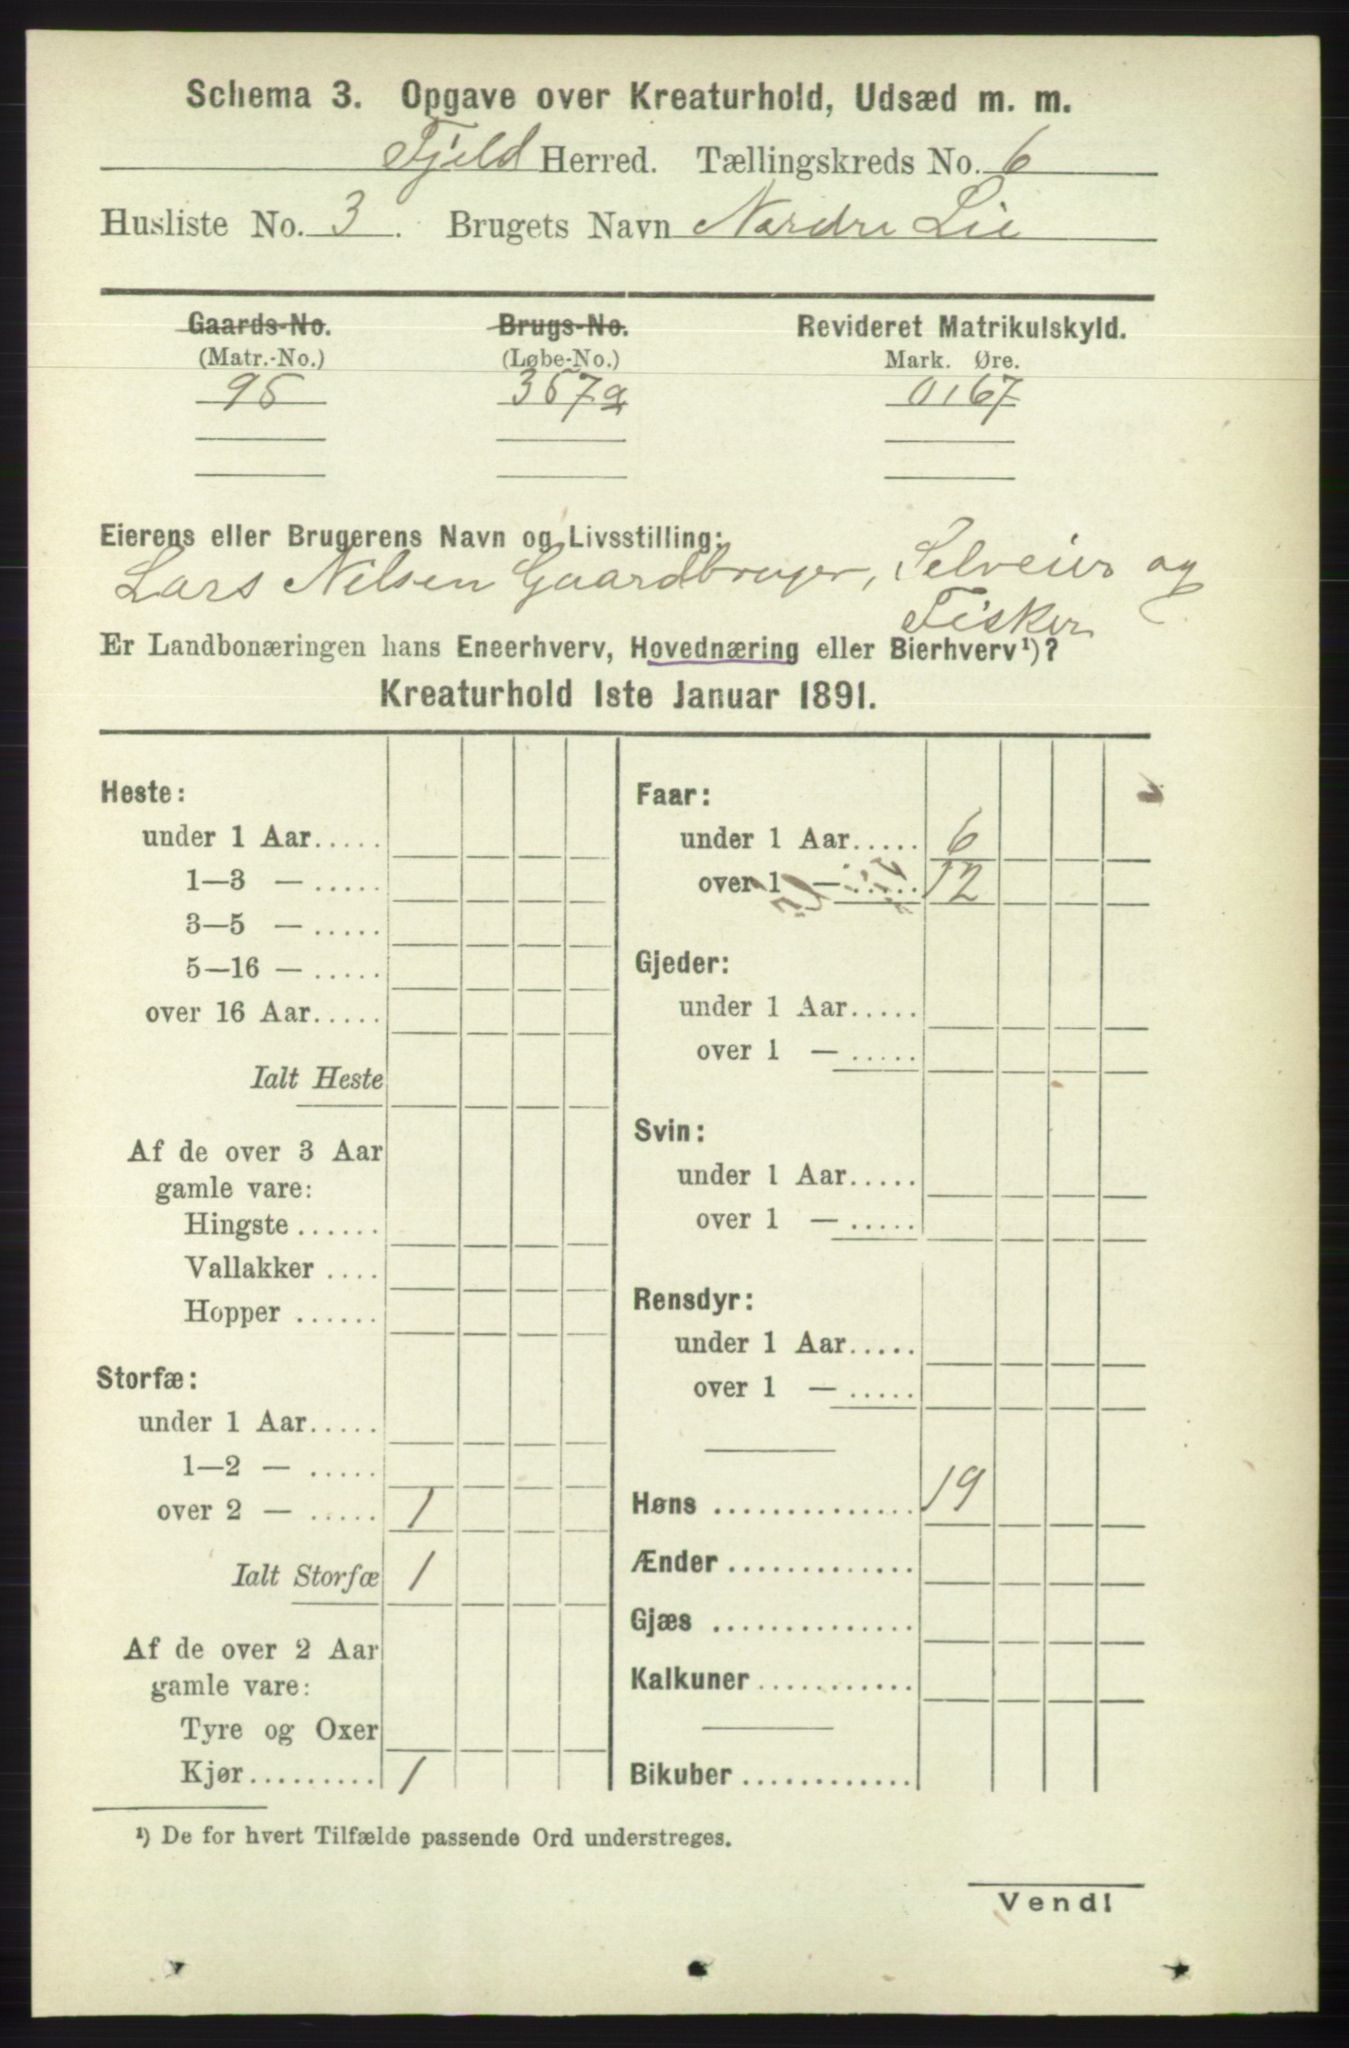 Schema 3. Opgave over Kreaturhold, Udsæd m. m.
Fjeld Herred. Tællingskreds No. 6
Husliste No. 3. Brugets Navn Nordre Lie
Gaards-No. Brugs-No. Revideret Matrikulskyld.
(Matr.-No.) (Løbe-No.) Mark. Øre.
95 357a 0,67
Eierens eller Brugerens Navn og Livsstilling:
Lars Nilsen Gaardbruger, Selveier og
Fisker
Er Landbonæringen hans Eneerhverv, Hovednæring eller Bierhverv¹)?
Kreaturhold 1ste Januar 1891.
Heste:
under 1 Aar.....
1—3 — .....
3—5 — .....
5—16 — .....
over 16 Aar.....
Ialt Heste
Af de over 3 Aar
gamle vare:
Hingste ......
Vallakker ....
Hopper ......
Storfæ:
under 1 Aar.....
1—2 — .....
over 2 — ..... 1
Ialt Storfæ 1
Af de over 2 Aar
gamle vare:
Tyre og Oxer
Kjør......... 1
Faar:
under 1 Aar..... 6
over 1 — ..... 12
Gjeder:
under 1 Aar.....
over 1 — .....
Svin:
under 1 Aar.....
over 1 — .....
Rensdyr:
under 1 Aar.....
over 1 — .....
Høns .............. 19
Ænder .............
Gjæs ..............
Kalkuner ...........
Bikuber ............
¹) De for hvert Tilfælde passende Ord understreges.
Vend!